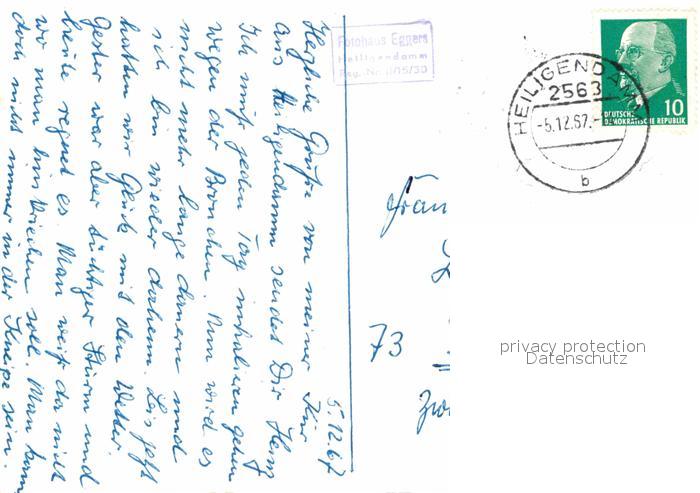 5.12.67
Herzliche Grüße von meiner Kur
aus Heiligendamm sendet Dir Herm
Ich muß jeden Tag inhalieren gehen
wegen der Bronchien. Nun wird es
nicht mehr lange dauern und
ich bin wieder daheim. Bis jetzt
hatten wir Glück mit dem Wetter.
Gestern war aber tüchtiger Sturm und
heute regnet es. Man weiß da nicht
wo man hinkriechen soll. Man kann
doch nicht immer in der Kneipe sein.
Fotohaus Eggers
Heiligendamm
Reg.-Nr. II/15/30
HEILIGENDAMM
2563
-5.12.67.-
b
10
DEUTSCHE
DEMOKRATISCHE REPUBLIK
Frau
73
Zw
privacy protection
Datenschutz